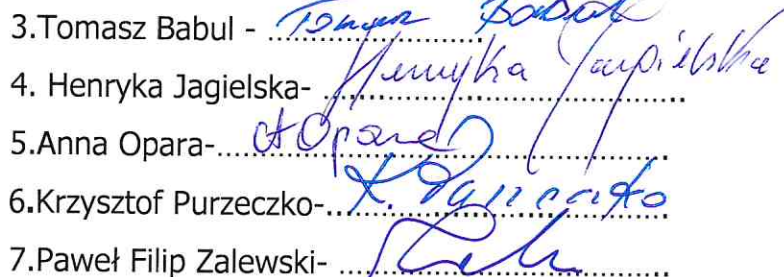 3.Tomasz Babul - Tomasz Babul
4. Henryka Jagielska- Henryka Jagielska
5.Anna Opara- A Opara
6.Krzysztof Purzeczko- K. Purzeczko
7.Paweł Filip Zalewski-